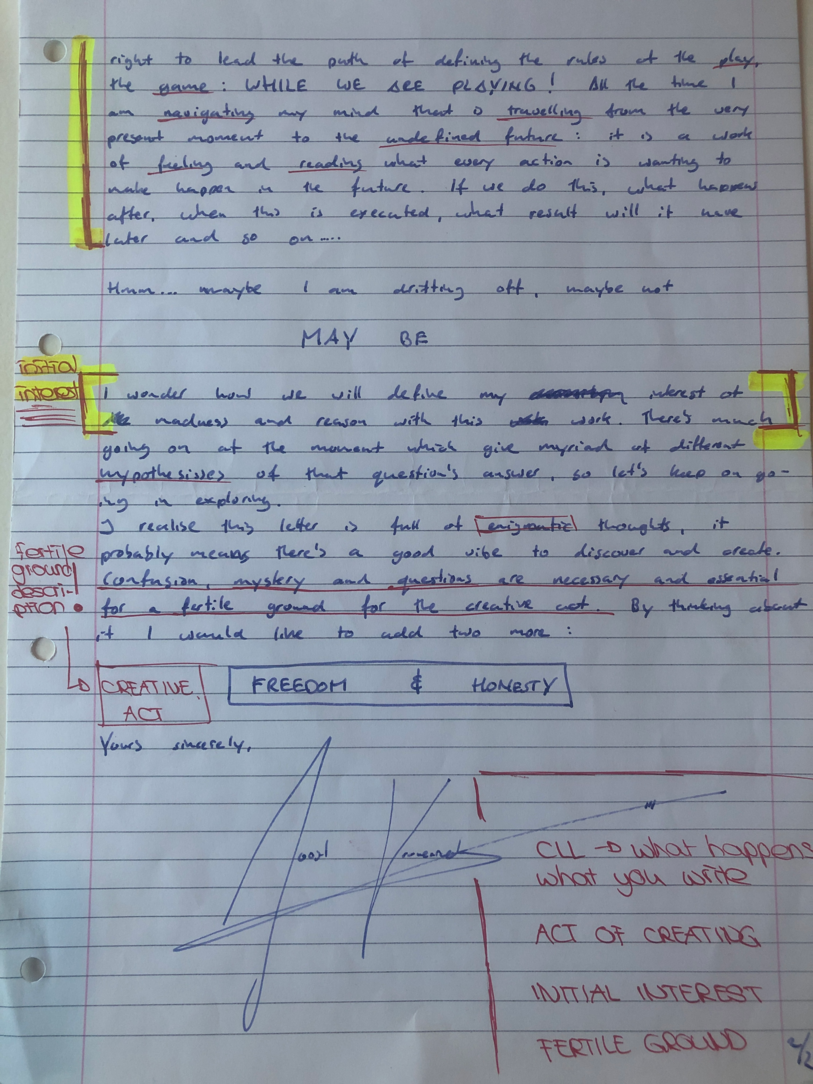 right to lead the path of defining the rules of the play,
the game: WHILE WE ARE PLAYING! All the time I
am navigating my mind that is travelling from the very
present moment to the undefined future: it is a work
of feeling and reading what every action is wanting to
make happen in the future. If we do this, what happens
after, when this is executed, what result will it have
later and so on....
Hmm... maybe I am drifting off, maybe not
MAY BE
initial
interest
I wonder how we will define my interest of
madness and reason with this work. There's much
going on at the moment which give myriad of different
mypothesisses of that question's answer, so let's keep on go-
ing in exploring.
I realise this letter is full of enigmatic thoughts, it
probably means there's a good vibe to discover and create.
Confusion, mystery and questions are necessary and essential
for a fertile ground for the creative act. By thinking about
it I would like to add two more:
fertile
ground
descri-
ption.
CREATIVE
ACT
FREEDOM & HONESTY
Yours sincerely,
CLL → what happens
what you write
ACT OF CREATING
INITIAL INTEREST
FERTILE GROUND
2/2